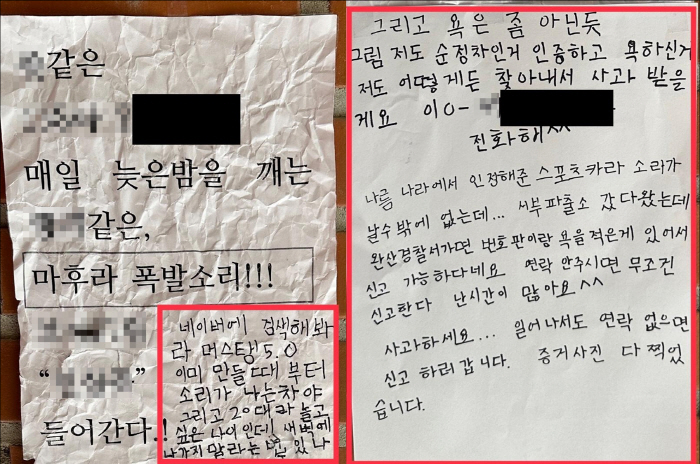 같은
매일 늦은밤을 깨는
같은,
마후라 폭발소리!!!
“
.”
들어간다.!
네이버에 검색해봐
라 머스탱 5.0
이미 만들때 부터
소리가 나는차야
그리고 20대라 놀고
싶은 나이인데 새벽에
나가지 말라는 법 있나
그리고 욕은 좀 아닌듯
그럼 저도 순정차인거 인증하고 욕하신거
저도 어떻게든 찾아내서 사과 받을
게요 010-
전화해^^
나름 나라에서 인정해준 스포츠카라 소리가
날수 밖에 없는데... 서부파출소 갔다왔는데
완산경찰서가면 번호판이랑 욕을 적은게 있어서
신고 가능하다네요 연락 안주시면 무조건
신고한다 난시간이 많아요^^
사과하세요... 일어나서도 연락 없으면
신고 하러 갑니다. 증거사진 다 찍었
습니다.